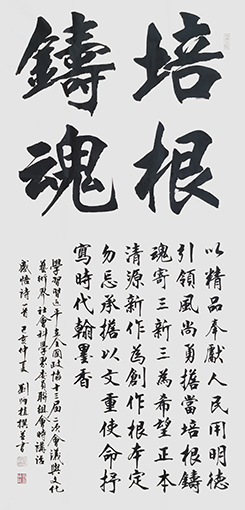 培根
鑄魂
以精品奉獻人民用明德
引領風尚勇擔當培根鑄
魂寄三新三為希望正本
清源新作為創作根本定
勿忘承擔以文重使命抒
寫時代翰墨香
學習習近平在全國政協十三屆二次會議與文化
藝術界社會科學界委員聯組會時講話
感悟詩一首 己亥仲夏 劉 桂撰并書